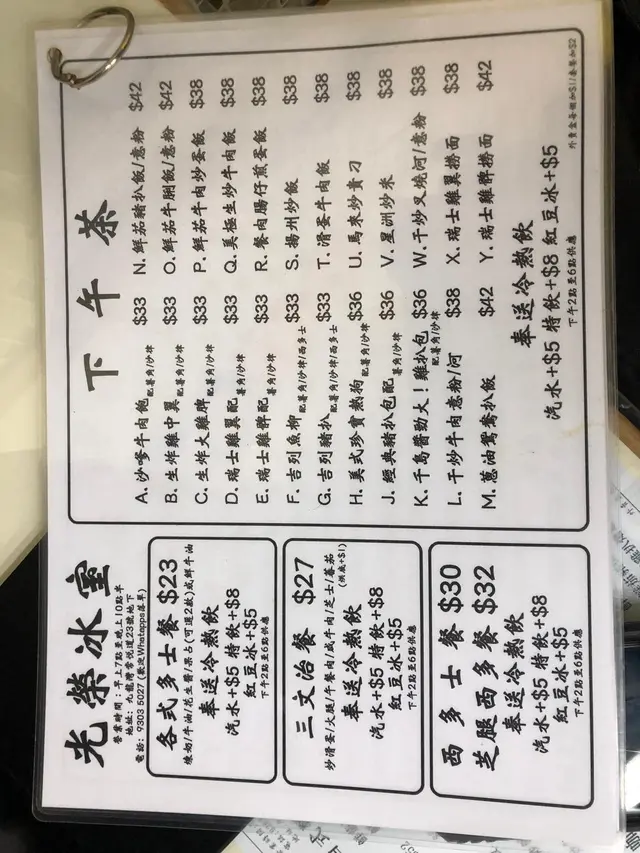 光榮冰室
營業時間：早上7點至晚上10點半
地址：九龍灣常悅道23號地下
電話：9303 5027 (歡迎Whatapps落單)
各式多士餐 $23
煉奶/牛油/花生醬/果占(可選2款)或鮮牛油
奉送冷熱飲
汽水+$5 特飲+$8
紅豆冰+$5
下午2點至6點供應
三文治餐 $27
炒滑蛋/火腿/午餐肉/咸牛肉/芝士/蕃茄
(烘底+$1)
奉送冷熱飲
汽水+$5 特飲+$8
紅豆冰+$5
下午2點至6點供應
西多士餐 $30
芝腿西多餐 $32
奉送冷熱飲
汽水+$5 特飲+$8
紅豆冰+$5
下午2點至6點供應
下午茶
A. 沙嗲牛肉飽 配薯角/沙律 $33
B. 生炸雞中翼 配薯角/沙律 $33
C. 生炸大雞髀 配薯角/沙律 $33
D. 瑞士雞翼配 薯角/沙律 $33
E. 瑞士雞髀配 薯角/沙律 $33
F. 吉列魚柳 配薯角/沙律/西多士 $33
G. 吉列豬扒 配薯角/沙律/西多士 $33
H. 美式珍寶熱狗 配薯角/沙律 $36
J. 經典豬扒包配 薯角/沙律 $36
K. 千島醬勁大！雞扒包 配薯角/沙律 $36
L. 干炒牛肉意粉/河 $38
M. 蔥油鴛鴦扒飯 $42
N. 鮮茄豬扒飯/意粉 $42
O. 鮮茄牛脷飯/意粉 $42
P. 鮮茄牛肉炒蛋飯 $38
Q. 美極生炒牛肉飯 $38
R. 餐肉腸仔煎蛋飯 $38
S. 揚州炒飯 $38
T. 滑蛋牛肉飯 $38
U. 馬來炒貴刁 $38
V. 星洲炒米 $38
W. 干炒叉燒河/意粉 $38
X. 瑞士雞翼撈面 $38
Y. 瑞士雞髀撈面 $42
奉送冷熱飲
汽水+$5 特飲+$8 紅豆冰+$5
下午2點至6點供應
外賣盒每個加$1/套餐加$2